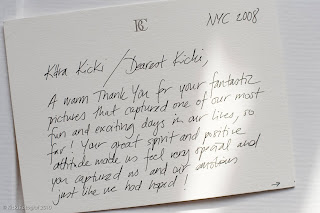 NYC 2008
Kära Kicki / Dearest Kicki,
A warm Thank You for your fantastic
pictures that captured one of our most
fun and exciting days in our lives, so
far! Your great spirit and positive
attitude made us feel very special and
you captured us and our
just like we had hoped!